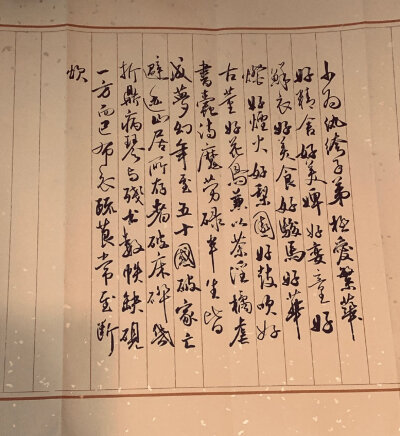 少为纨绔子弟極愛繁華
好精舍好美婢好孌童好
鮮衣好美食好駿馬好華
燈好煙火好梨園好鼓吹好
古董好花鳥兼以茶淫橘虐
書蠹詩魔勞碌半生皆
成夢幻年至五十國破家亡
避迹山居所存者破床碎几
折鼎病琴与殘書數帙缺硯
一方而已布衣蔬食常至断
炊